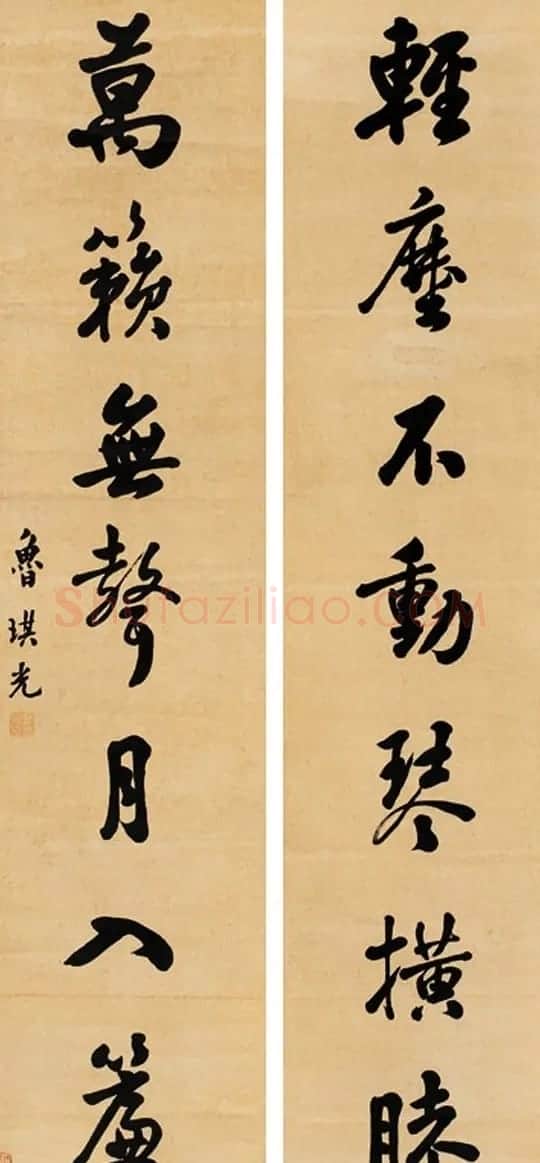 輕塵不動琴橫膝
萬籟無聲月入簾
魯琪光
Shufaziliao.COM